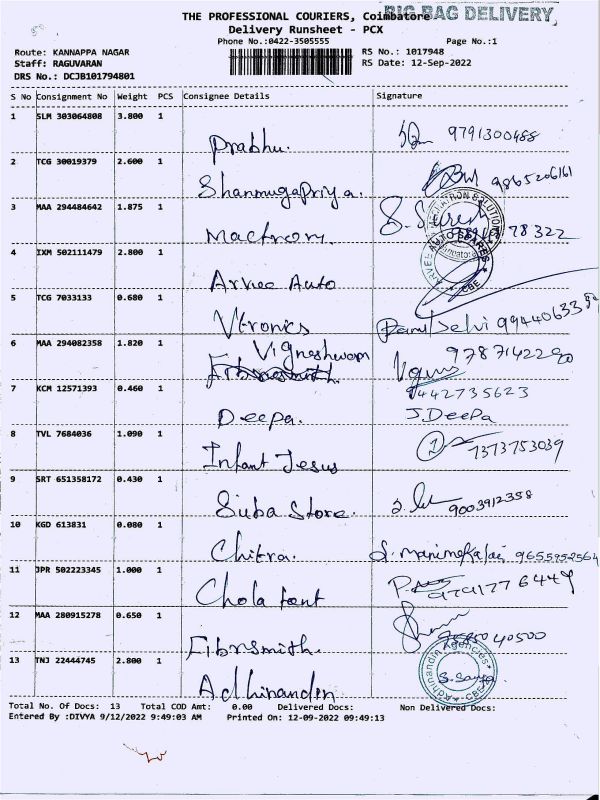 THE PROFESSIONAL COURIERS, Coimbatore BIG BAG DELIVERY
Delivery Runsheet - PCX
Phone No.:0422-3505555 Page No.:1
Route: KANNAPPA NAGAR RS No.: 1017948
Staff: RAGUVARAN RS Date: 12-Sep-2022
DRS No.: DCJB101794801
S No Consignment No Weight PCS Consignee Details Signature
1 SLM 303064808 3.800 1
Prabhu. 9791300488
2 TCG 30019379 2.600 1
Shanmugapriya. 9865206161
3 MAA 294484642 1.875 1
Mactron. S. Suresh 78322
4 IXM 502111479 2.800 1
Arvee Auto ARVEE AUTO SPARES CBE
5 TCG 7033133 0.680 1
Vtronics 99440633
6 MAA 294082358 1.820 1
Vigneshwaan 9787142290
7 KCM 12571393 0.460 1 9442735623
Deepa. J.Deepa
8 TVL 7684036 1.090 1
Infant Jesus 7373753039
9 SRT 651358172 0.430 1
Suba Store. 9003912358
10 KGD 613831 0.080 1
Chitra. S. Manimekalai 9655952564
11 JPR 502223345 1.000 1
Chola font
12 MAA 280915278 0.650 1
Fibrsmith. 40500
13 TNJ 22444745 2.800 1
Adhinandin Adhinandin Agencies CBE
Total No. Of Docs: 13 Total COD Amt: 0.00 Delivered Docs: Non Delivered Docs:
Entered By :DIVYA 9/12/2022 9:49:03 AM Printed On: 12-09-2022 09:49:13